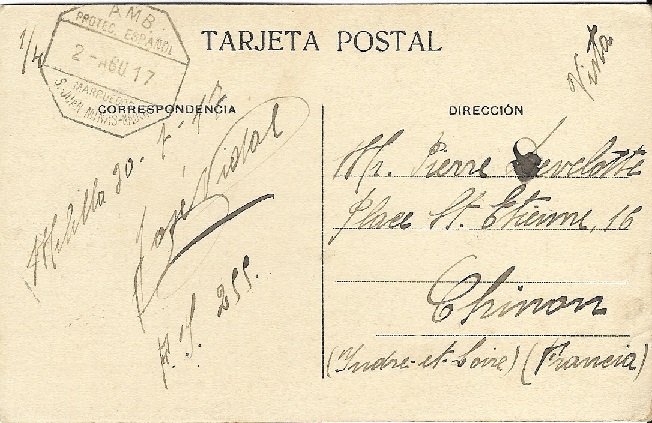 1/4
AMB
PROTEC. ESPAÑOL
2-AGO 17
MARRUECOS
TARJETA POSTAL
Vista
CORRESPONDENCIA
DIRECCIÓN
Melilla 30-7-17
José Vidal
255.
Mr. Pierre
Place St. Etienne, 16
Chinon
(Indre-et-Loire) (Francia)